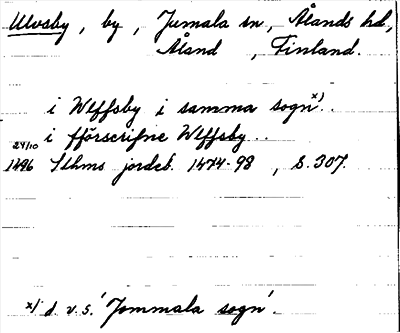 Ulvsby, by, Jumala sn, Ålands hd,
Åland, Finland.
i Wlffsby i samma sogn x)..
i fförscrifne Wlffsby..
24/10
1496 Sthms jordeb. 1474-98, S. 307.
x) d. v. s. 'Jommala sogn'.